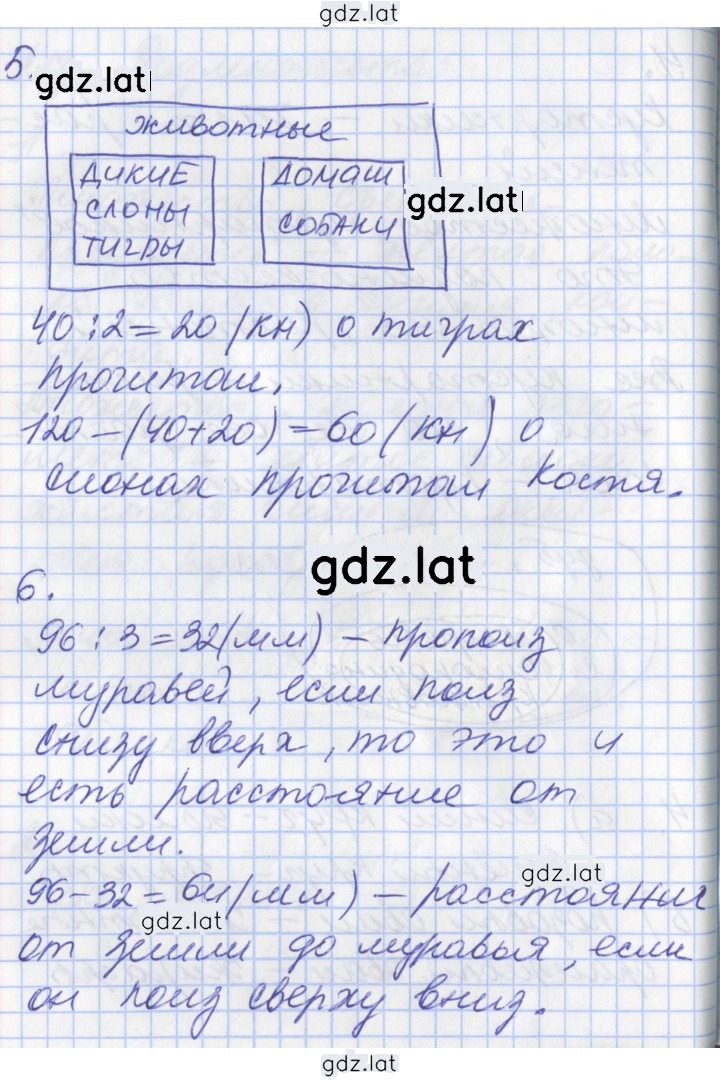 gdz.lat
5.
gdz.lat
животные
ДИКИЕ
СЛОНЫ
ТИГРЫ
ДОМАШ
СОБАКИ
gdz.lat
40 : 2 = 20 (кн) о тиграх
прочитал.
120 – (40+20) = 60 (кн) о
слонах прочитал Костя.
gdz.lat
6.
96 : 3 = 32 (мм) – прополз
муравей, если полз
снизу вверх, то это и
есть расстояние от
земли.
gdz.lat
96 – 32 = 64 (мм) – расстояние
gdz.lat
от земли до муравья, если
он полз сверху вниз.
gdz.lat